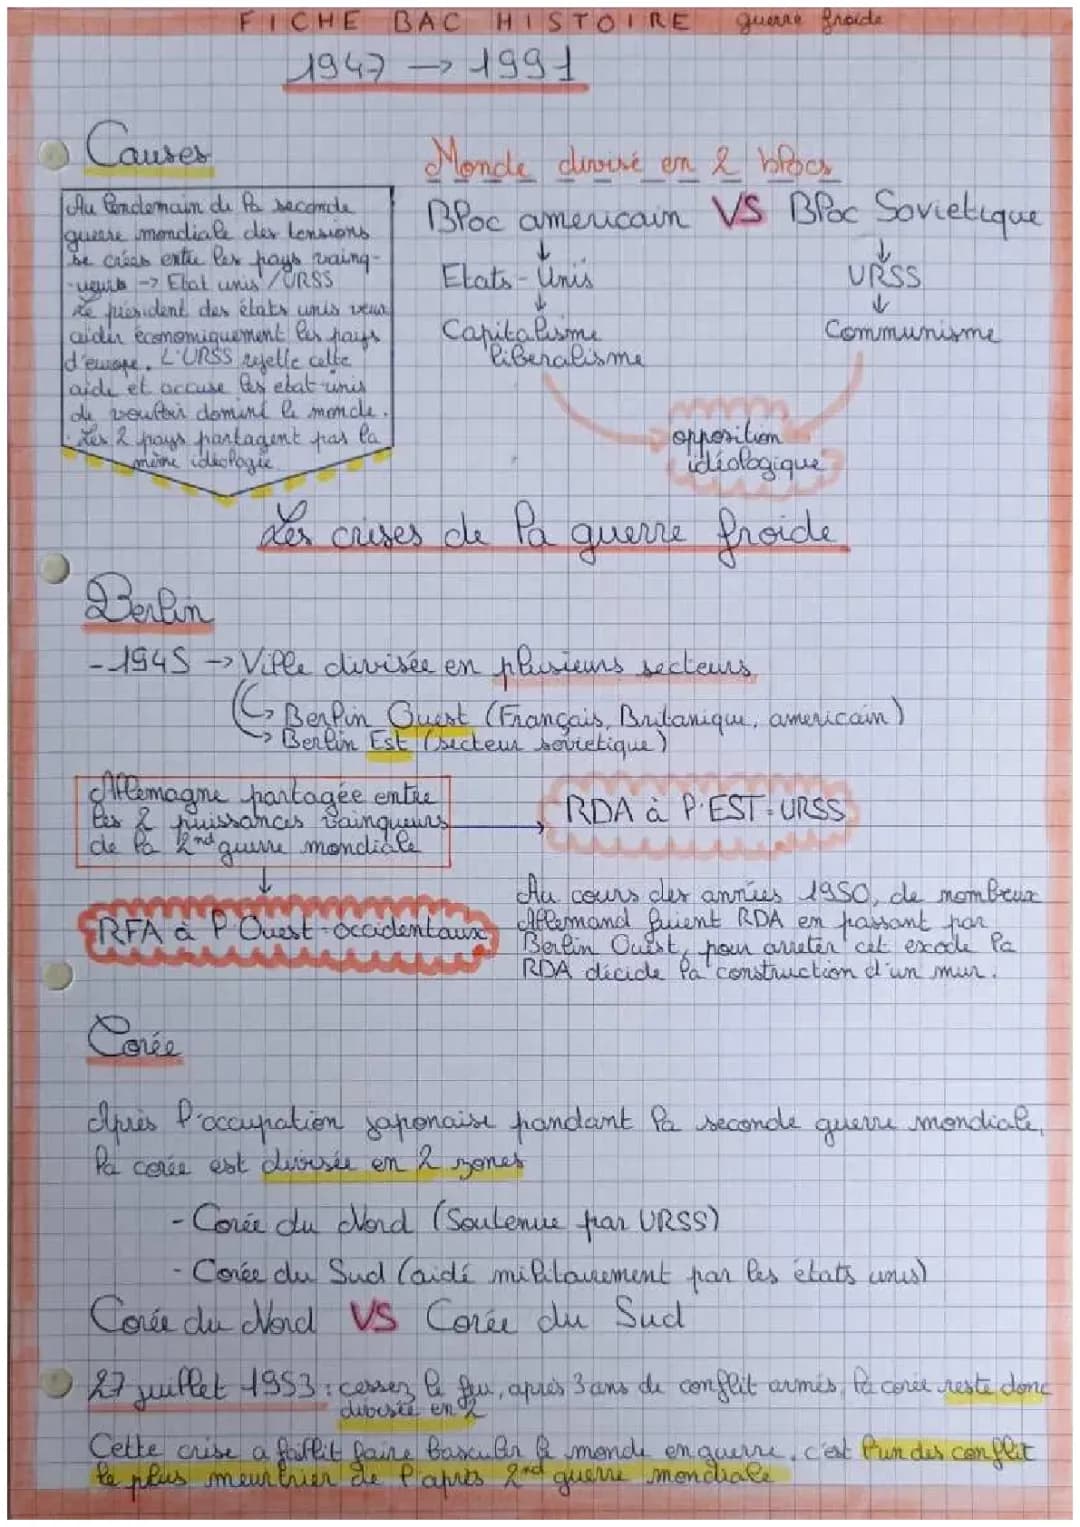 FICHE BAC HISTOIRE guerre froide
1947 → 1991
Causes
Au lendemain de la seconde
guerre mondiale des tensions
se crées entre les pays vainq-
-ueurs → Etat unis / URSS
Le président des états unis veut
aider économiquement les pays
d'europe. L'URSS rejette cette
aide et accuse les etat-unis
de vouloir dominé le monde.
Les 2 pays partagent pas la
même idéologie
Monde divisé en 2 blocs
Bloc americain VS Bloc Sovietique
↓ ↓
Etats-Unis URSS
↓ ↓
Capitalisme Communisme
liberalisme
opposition
idéologique
Les crises de la guerre froide
Berlin
- 1945 → Ville divisée en plusieurs secteurs
→ Berlin Ouest (Français, Britanique, americain)
→ Berlin Est (secteur sovietique)
Allemagne partagée entre
les 2 puissances vainqueurs
de la 2nd guerre mondiale
RDA à l'EST = URSS
RFA à l'Ouest = occidentaux
Au cours des années 1950, de nombreux
Allemand fuient RDA en passant par
Berlin Ouest, pour arreter cet exode la
RDA décide la construction d'un mur.
Corée
Après l'occupation japonaise pandant la seconde guerre mondiale,
la corée est divisée en 2 zones
- Corée du Nord (Soutenue par URSS)
- Corée du Sud (aidé militairement par les états unis)
Corée du Nord VS Corée du Sud
27 juillet 1953 : cessez le feu, après 3 ans de conflit armés, la corée reste donc
divisée en 2
Cette crise a faillit faire basculer le monde en guerre, c'est l'un des conflit
le plus meurtrier de l'après 2nd guerre mondiale